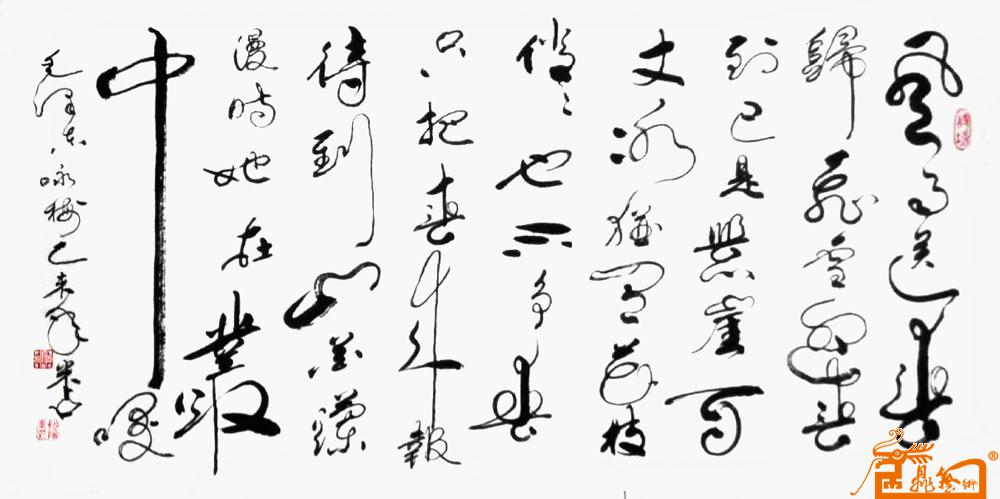 風雨送春
歸飛雪迎春
到已是懸崖百
丈冰猶有花枝
俏〻也不争春
只把春来報
待到山花爛
漫時她在叢
中咲
毛泽东咏梅己未